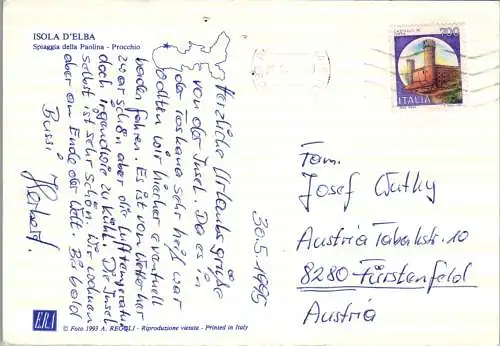 ISOLA D'ELBA
Spiaggia della Paolina - Procchio
700
ITALIA
Herzliche Urlaubsgrüße
von der Insel. Da es in
der Toskana sehr heiß war
wollten wir hierher eventuell
baden fahren. Es ist vom Wetter her
zwar schön aber die Lufttemperatur
doch irgendwie zu kühl. Die Insel
selbst ist sehr schön. Wir wohnen
aber am Ende der Welt. Bis bald
Bussi
Herbert.
30.5.1995
Fam.
Josef Wutky
Austria Tabakstr. 10
8280 Fürstenfeld
Austria
ERA
© Foto 1993 A. REGOLI - Riproduzione vietata - Printed in Italy